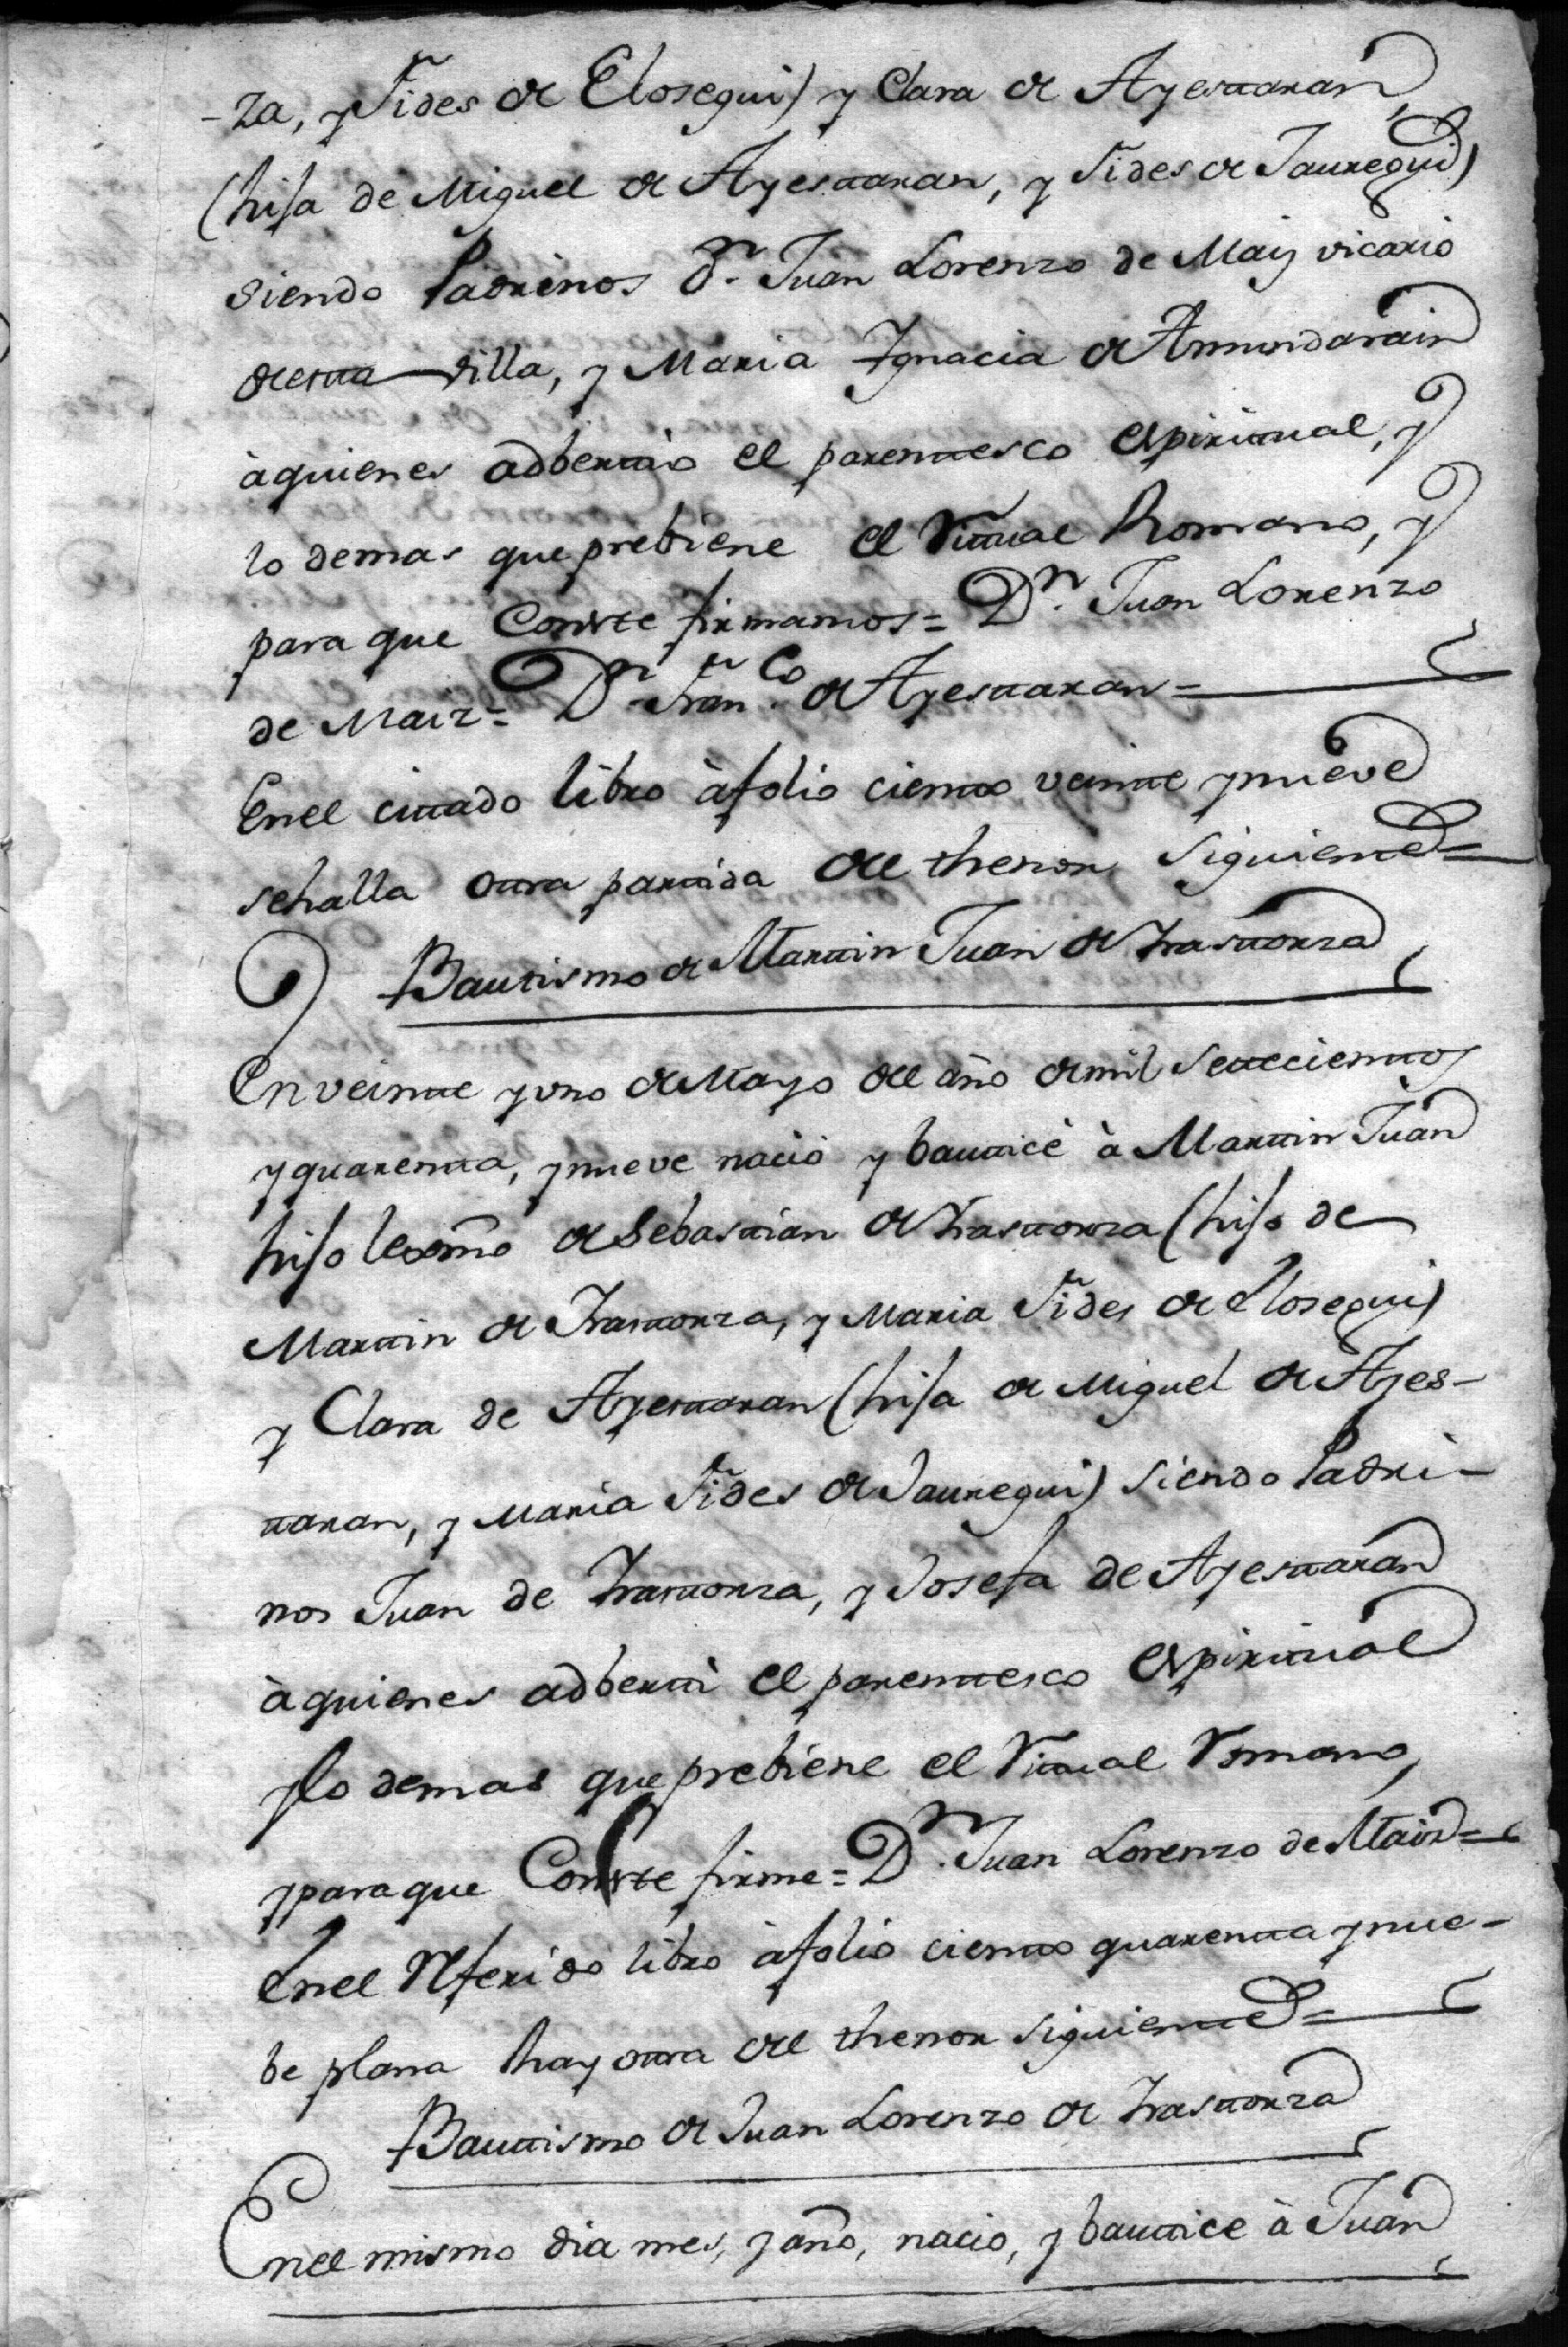 -za, y Fides de Elosegui) y Clara de Ayestaran
(hija de Miguel de Ayestaran, y Fides de Jauregui)
siendo Padrinos Dn. Juan Lorenzo de Maiz vicario
de esta villa, y Maria Ignacia de Amundarain
à quienes adbertio el parentesco espiritual, y
lo demas que prebiene el Ritual Romano, y
para que Conste firmamos = Dn. Juan Lorenzo
de Maiz = Dn. Franco. de Ayestaran =
En el citado libro à folio ciento veinte y nueve
se halla otra partida del thenor siguiente =
Bautismo de Martin Juan de Trastorza
En veinte y uno de Mayo del año de mil setecientos
y quarenta, y nueve naciò y bauticè à Martin Juan
hijo lexmo de Sebastian de Trastorza (hijo de
Martin de Trastorza, y Maria Fides de Elosegui)
y Clara de Ayestaran (hija de Miguel de Ayes-
taran, y Maria Fides de Jauregui) siendo Padri-
nos Juan de Trastorza, y Josefa de Ayestaran
à quienes adbertì el parentesco espiritual
y lo demas que prebiene el Ritual Romano,
y para que Conste firme = Dn. Juan Lorenzo de Maiz =
En el referido libro à folio ciento quarenta y nue-
be plana hay otra del thenor siguiente =
Bautismo de Juan Lorenzo de Trastorza
En el mismo dia mes, y año, nacio, y bautice à Juan